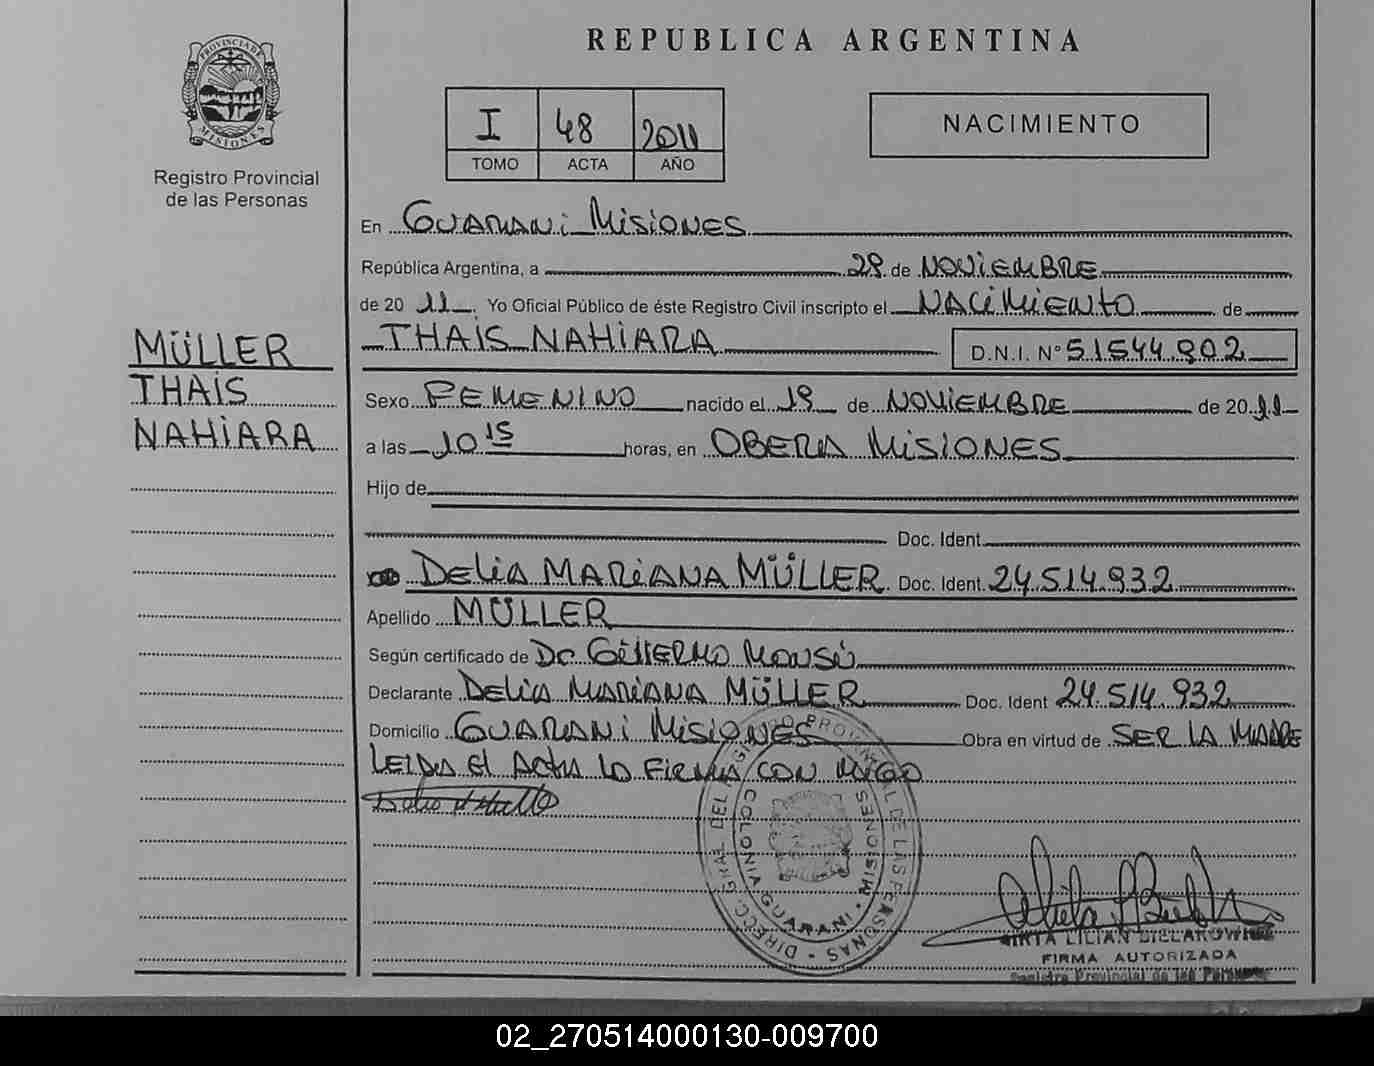 PROVINCIA DE
MISIONES
Registro Provincial
de las Personas
REPUBLICA ARGENTINA
I 48 2011
TOMO ACTA AÑO
NACIMIENTO
En GUARANI MISIONES
República Argentina, a 29 de NOVIEMBRE
de 20 11. Yo Oficial Público de éste Registro Civil inscripto el NACIMIENTO de
THAIS NAHIARA D.N.I. Nº 51544.902
Sexo FEMENINO nacido el 19 de NOVIEMBRE de 20 11
a las 10 15 horas, en OBERA MISIONES
Hijo de
Doc. Ident.
DELIA MARIANA MÜLLER Doc. Ident. 24.514.932
Apellido MÜLLER
Según certificado de Dr. GÜILLERMO
Declarante DELIA MARIANA MÜLLER Doc. Ident 24.514.932
Domicilio GUARANI MISIONES Obra en virtud de SER LA MADRE
LEIDA El ACTA LO FIRMA CON MIGO
MÜLLER
THAIS
NAHIARA
DIRECC. GRAL. DEL REGISTRO PROVINCIAL DE LAS PERSONAS
COLONIA GUARANI - MISIONES
LILIAN
FIRMA AUTORIZADA
Registro Provincial de las Personas
02_270514000130-009700